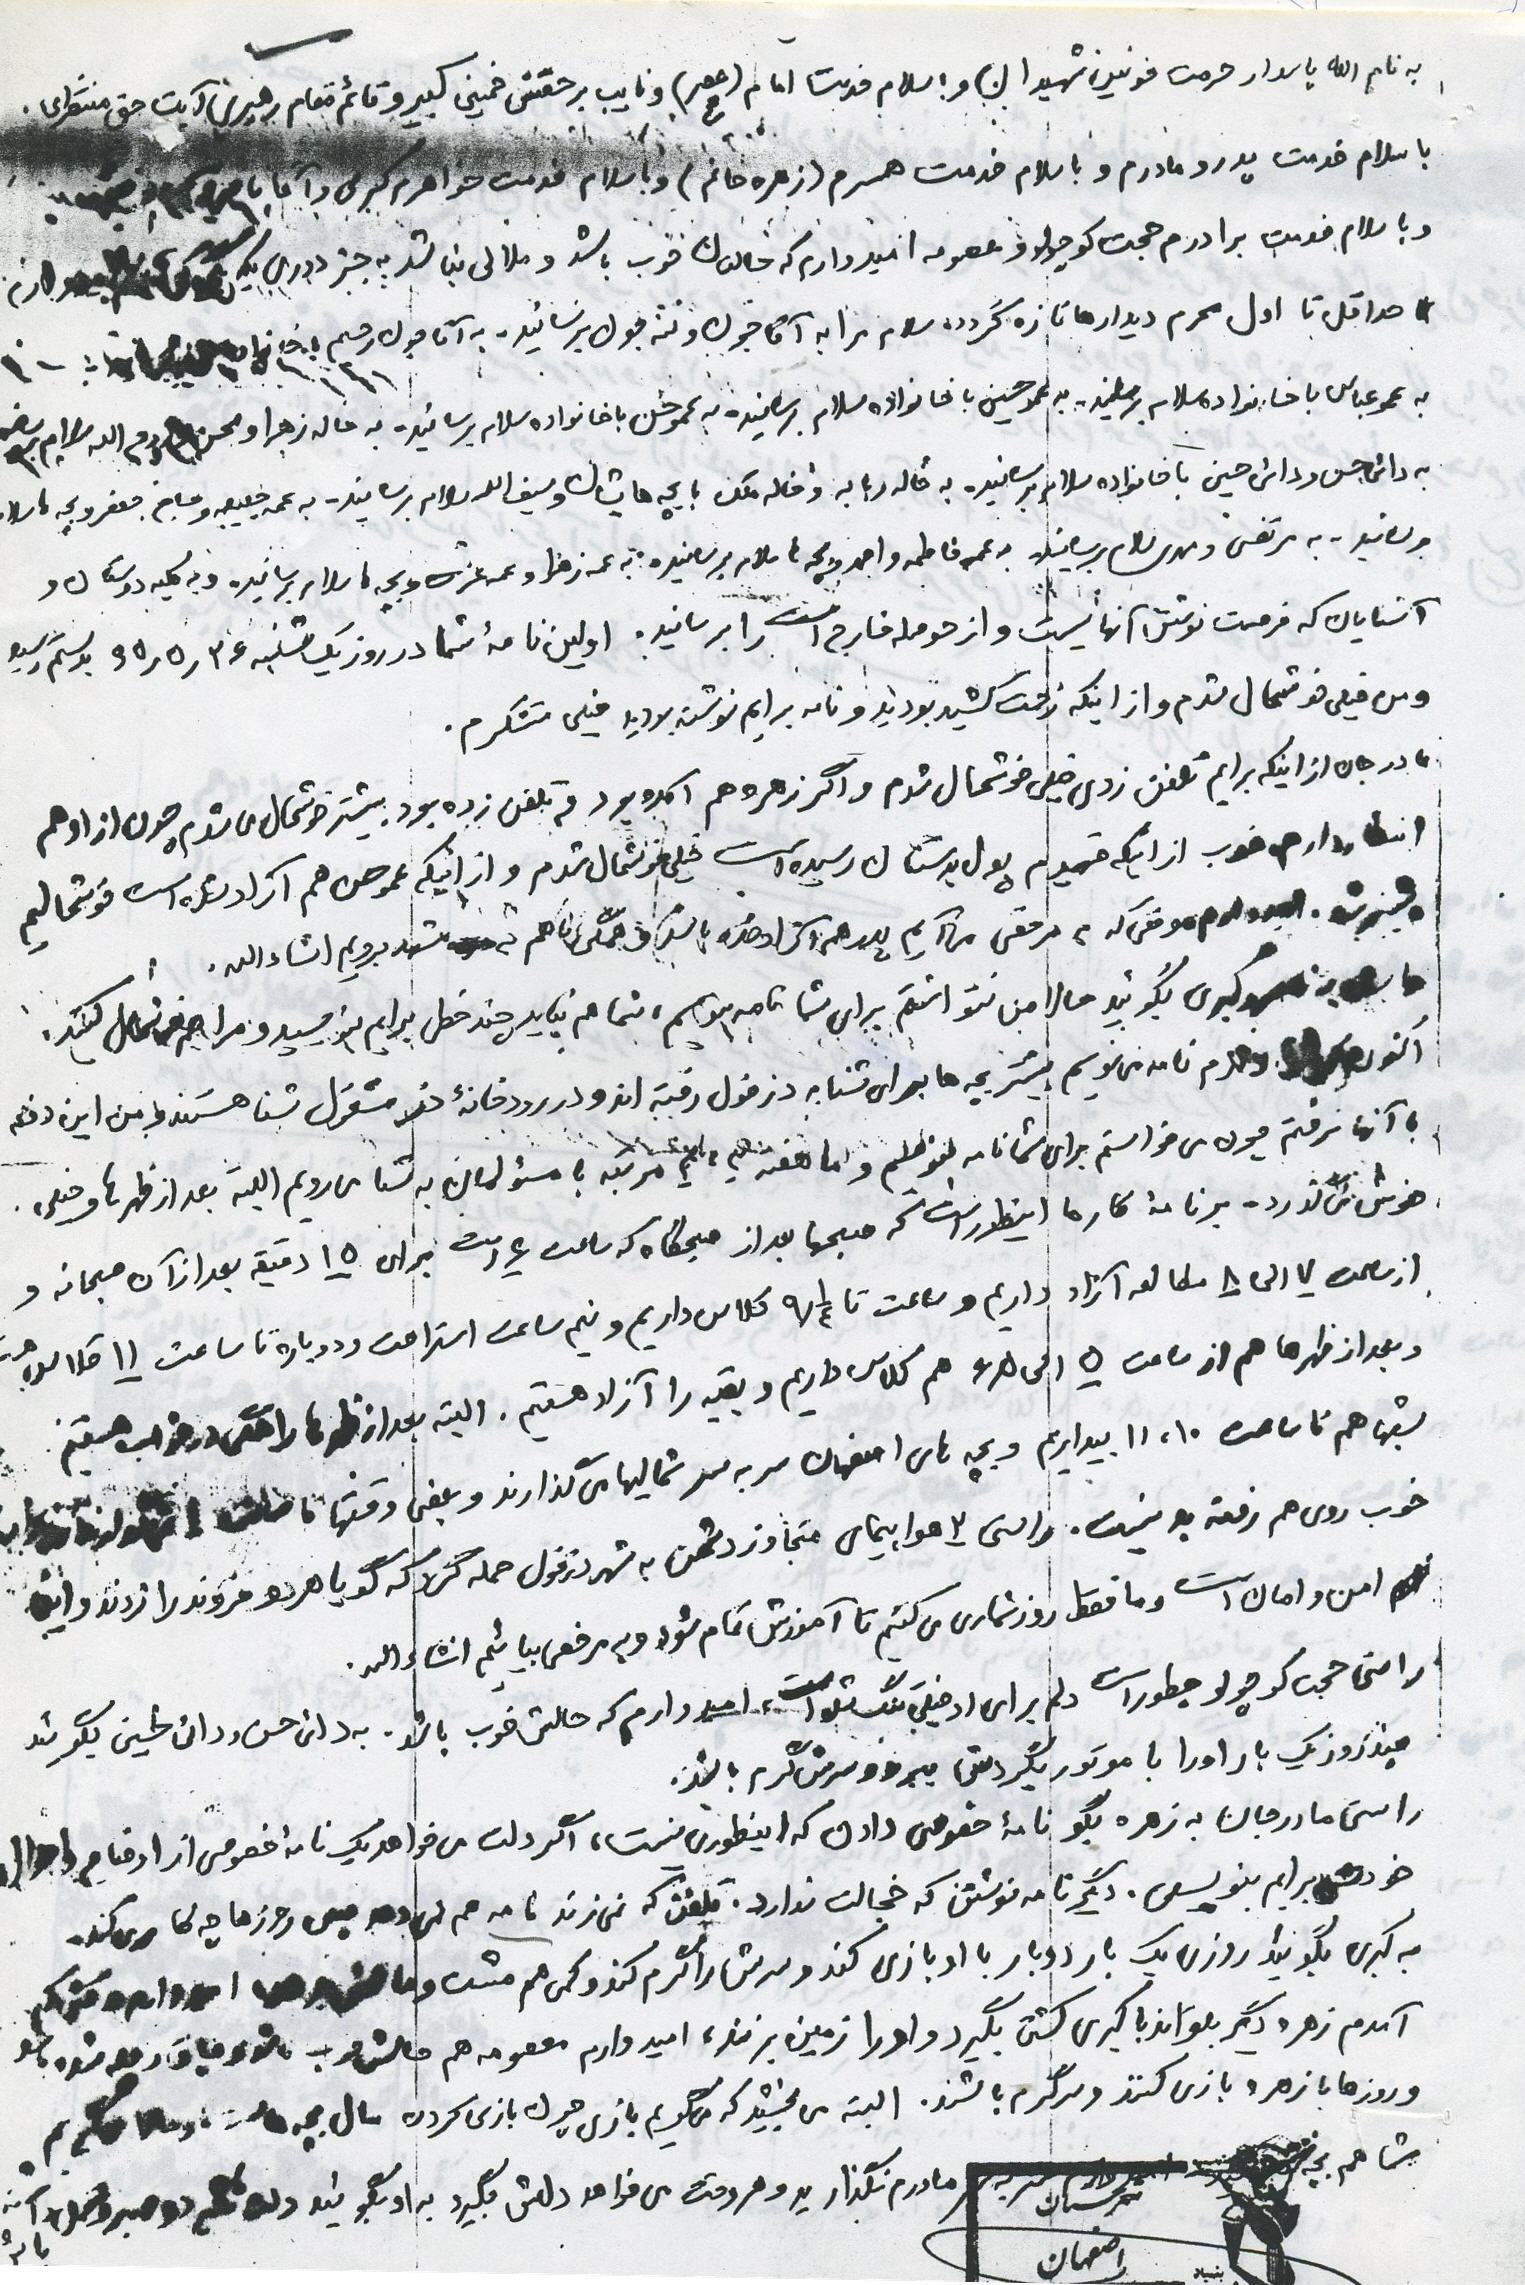 به نام الله پاسدار حرمت خون شهیدان و با سلام خدمت امام (عصر) عج و نایب برحقش خمینی کبیر و قائم مقام رهبری آیت حق منتظری.
با سلام خدمت پدر و مادرم و با سلام خدمت همسرم (زهره خانم) و با سلام خدمت خواهرم کبری و آقا
و با سلام خدمت برادرم حجت کوچولو و معصومه امیدوارم که حالتان خوب باشد و ملالی نباشد به جز دوری
حداقل تا اول محرم دیدارها تازه گردد. سلام مرا به آقاجون و ننه جون برسانید - به آقاجون رحیم با خانواده
به عمو عباس با خانواده سلام برسانید - به عمو حسین با خانواده سلام برسانید - به عمو حسن با خانواده سلام برسانید - به خاله زهرا و محسن و الله سلام برسانید
به دائی حسن و دائی حسین با خانواده سلام برسانید - به خاله ربابه و خاله ملک با بچه هایشان و سیف الله سلام برسانید - به عمه خدیجه و حاج جعفر و بچه ها سلام
برسانید - به مرتضی و مهدی سلام برسانید به عمه فاطمه و احمد و بچه ها سلام برسانید - به عمه زهرا و عمه عزت و بچه ها سلام برسانید و به کلیه دوستان و
آشنایان که فرصت نوشتن آنها نیست و از حوصله خارج است را برسانید. اولین نامۀ شما در روز یک شنبه ۲۶ ر ۵ ر ۶۵ بدستم رسید
و من خیلی خوشحال شدم و از اینکه زحمت کشیده بودید و نامه برایم نوشته بودید خیلی متشکرم.
مادر جان از اینکه برایم تلفن زدی خیلی خوشحال شدم و اگر زهره هم آمده بود و تلفن زده بود بیشتر خوشحال می شدم چون از او هم
انتظار دارم خوب از اینکه فهمیدم پول بدستتان رسیده است خیلی خوشحال شدم و از اینکه عمو حسن هم آزاد شده است خوشحالیم
وقتی که به مرخصی می آیم پدر هم آزاد شده باشد و همگی با هم به مشهد برویم انشاءالله.
کبری بگوئید حالا من نتوانستم برای شما نامه بنویسم، شما هم نباید چند خطی برایم بنویسید و مرا خوشحال کنید.
اکنون که دارم نامه می نویسم بیشتر بچه ها برای شنا به دزفول رفته اند و در رودخانۀ دز مشغول شنا هستند و من این دفعه
با آنها نرفتم چون می خواستم برای شما نامه بنویسم و ما هفته ای مرتبه با مسئولمان به شنا می رویم البته بعد از ظهرها و خیلی
خوش می گذرد - برنامۀ کار ما اینطور است که صبحها بعد از صبحگاه که ساعت ۶ است برای ۱۵ دقیقه بعد از آن صبحانه و
از ساعت ۷ الی ۸ مطالعه آزاد داریم و ساعت تا ۹ ۱/۲ کلاس داریم و نیم ساعت استراحت و دوباره تا ساعت ۱۱ کلاس
و بعد از ظهرها هم از ساعت ۵ الی ۶ هم کلاس داریم و بقیه را آزاد هستیم. البته بعد از ظهرها را همگی در خواب هستیم.
شبها هم تا ساعت ۱۰، ۱۱ بیداریم و بچه های اصفهان سر به سر شمالیها می گذارند و بعضی وقتها تا ساعت
خوب روی هم رفته بد نیست. راستی ۲ هواپیمای متجاوز دشمن به شهر دزفول حمله کرد که گویا هر دو فروند را زدند و
امن و امان است و ما فقط روزشماری می کنیم تا آموزش تمام شود و به مرخصی بیائیم انشاءالله.
راستی حجت کوچولو چطور است دلم برای او خیلی تنگ شده است، امیدوارم که حالش خوب باشد. به دائی حسن و دائی حسین بگوئید
چند روز یک بار او را با موتور بگردش ببرند و سرش گرم باشد.
راستی مادرجان به زهره بگو نامۀ خصوصی دادن که اینطوری نیست، اگر دلت می خواهد یک نامۀ خصوصی از اوضاع و احوال
خودش برایم بنویس. دیگر نامه نوشتن که خجالت ندارد. تلفن که نمی زند نامه هم نمی دهد پس روزها چه کار می کند.
به کبری بگوئید روزی یک بار دوبار با او بازی کند و سرش را گرم کند و کمی هم مشت و
آمدم زهره دیگر بتواند با کبری کشتی بگیرد و او را زمین بزند، امیدوارم معصومه هم حالش خوب
و روزها با زهره بازی کنند و سرگرم باشند. البته می بخشید که می گویم بازی چون بازی کردن مال بچه هاست
شما هم بچه سر به سر مادرم نگذارید و هر وقت می خواهد دلش بگیرد به او بگوئید صبر و تحمل
باشد
شهرستان
اصفهان
بنیاد